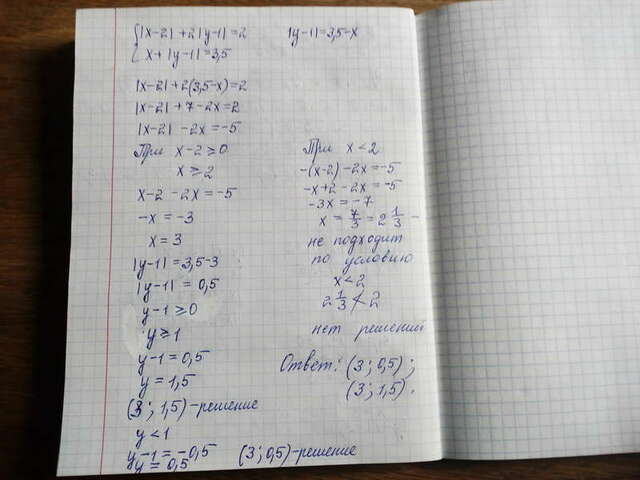 |x-2|+2|y-1|=2
x+|y-1|=3,5
|y-1|=3,5-x
|x-2|+2(3,5-x)=2
|x-2|+7-2x=2
|x-2|-2x=-5
При x-2≥0
x≥2
x-2-2x=-5
-x=-3
x=3
|y-1|=3,5-3
|y-1|=0,5
y-1≥0
y≥1
y-1=0,5
y=1,5
(3; 1,5)-решение
y<1
y-1=-0,5
y=0,5
(3; 0,5)-решение
При x<2
-(x-2)-2x=-5
-x+2-2x=-5
-3x=-7
x=7/3=2 1/3 -
не подходит
по условию
x<2
2 1/3 ≮ 2
нет решений
Ответ: (3; 0,5);
(3; 1,5).